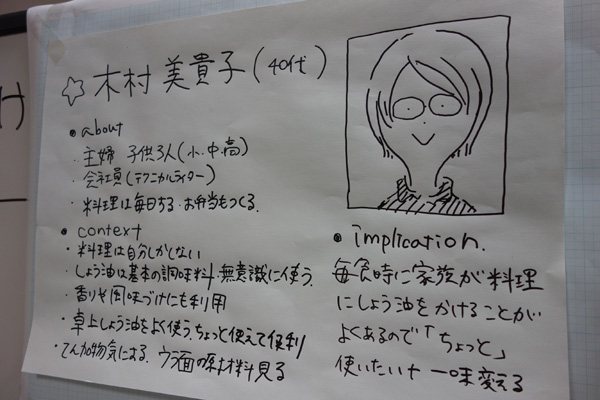 ☆ 木村 美貴子(40代)
• about
・主婦 子供3人(小、中、高)
・会社員(テクニカルライター)
・料理は毎日する・お弁当もつくる.
• context
・料理は自分しかしない
・しょう油は基本の調味料・無意識に使う.
・香りや風味づけにも利用
・卓上しょう油をよく使う.ちょっと使えて便利
・てんか物気にする、ウラ面の原材料見る
• implication.
毎食時に家族が料理
にしょう油をかけることが
よくあるので「ちょっと」
使いたい+一味変える
け